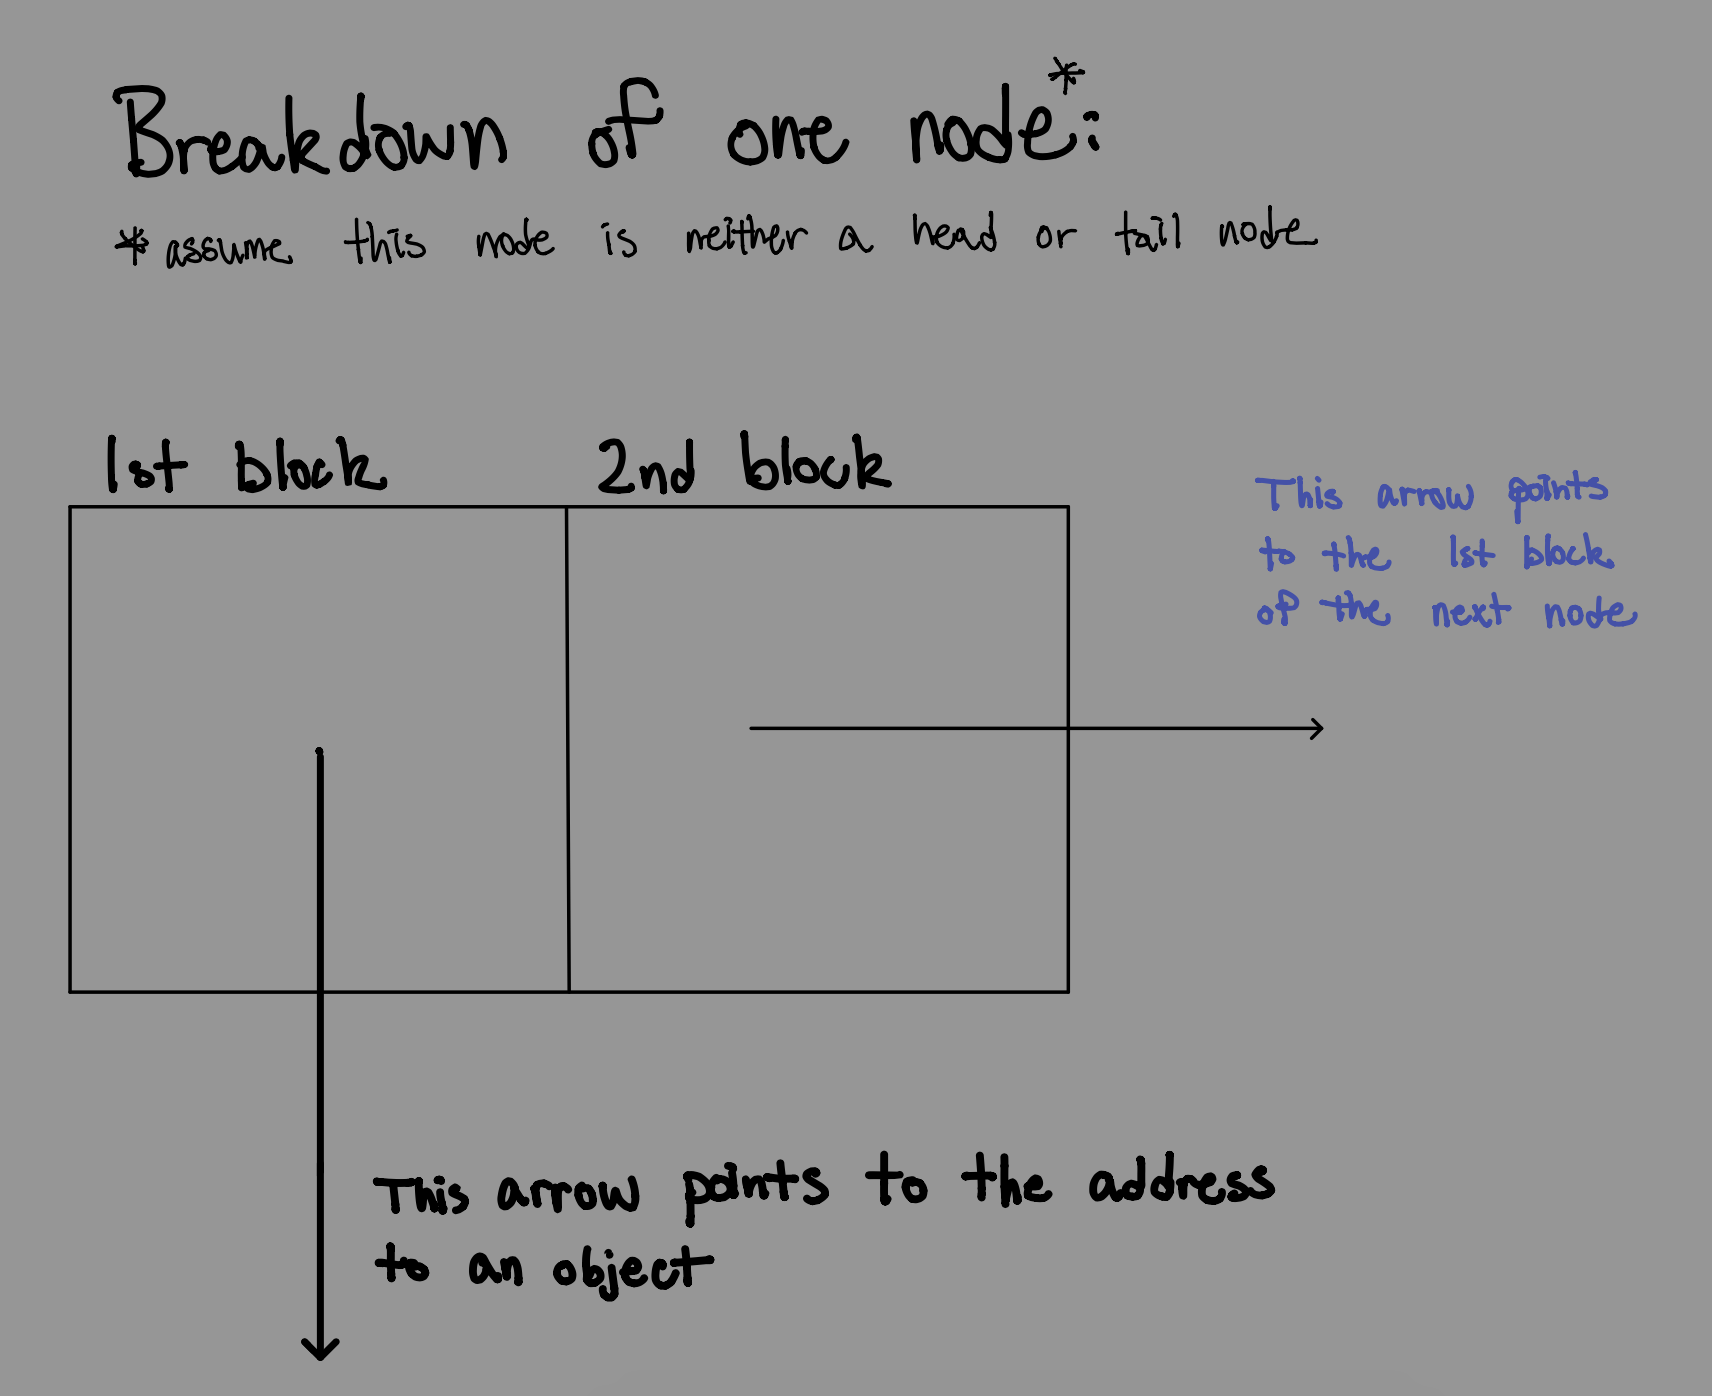 Breakdown of one node*:
*assume this node is neither a head or tail node
1st block
2nd block
This arrow points
to the 1st block
of the next node
This arrow points to the address
to an object